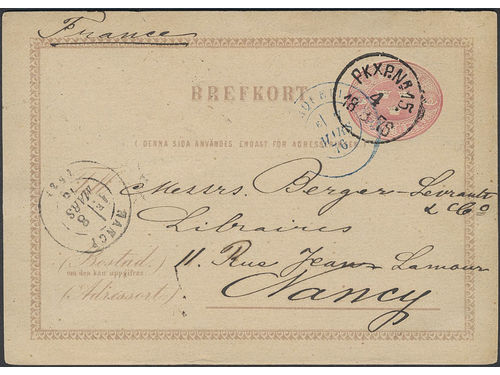 France
BREFKORT
PKXP.Nº15
4
18 3 76
MARS
76
( DENNA SIDA ANVÄNDES ENDAST FÖR ADRESSEN. )
Messrs. Berger-Levrault
& Cº
Libraires
11. Rue Jean Lamour
Nancy
(Bostad
om den kan uppgifvas
(Adressort.)
NANCY
8
MARS
76